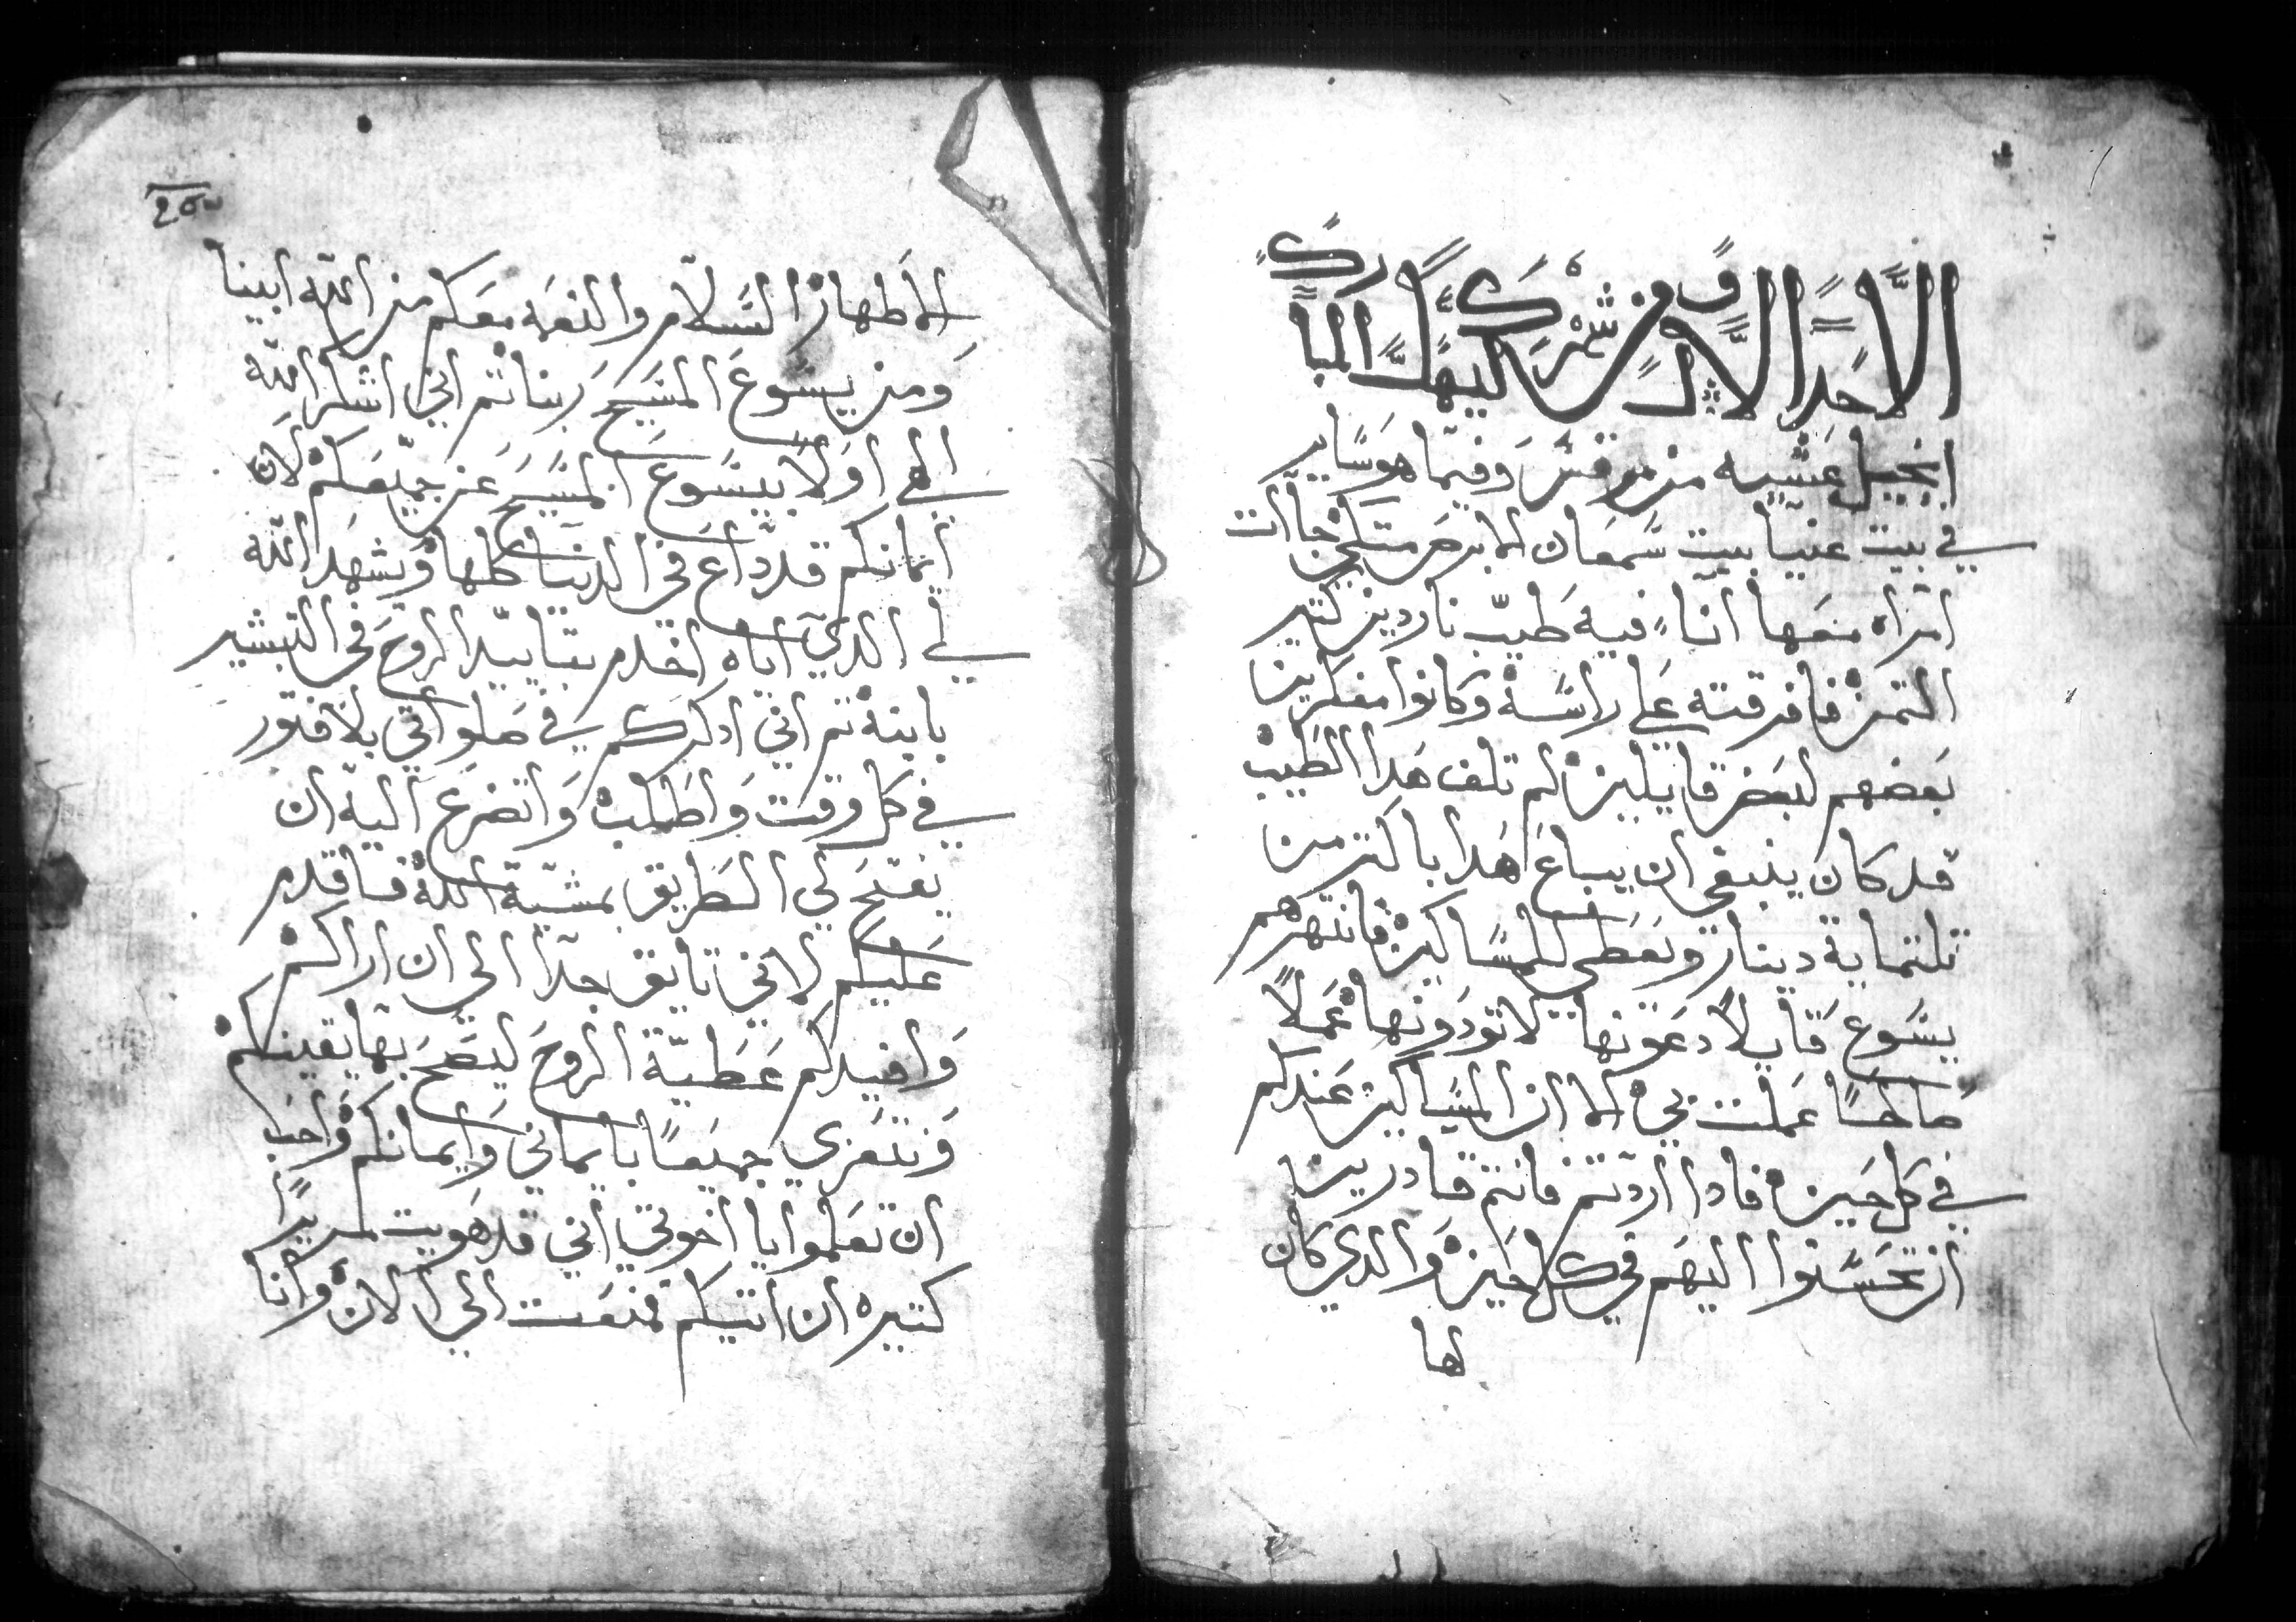 الاحد الاول من شهر كيهك المبارك
انجيل عشيه من مرقس وفيما هو ساير
في بيت عنيا بيت سمعان الابرص متكي جات
امراه معها انآء فيه طيب ناردين كتير
التمن فافرقته علي راسه وكانوا مفكرين
بعضهم لبعض قايلين لم تلف هدا الطيب
قد كان ينبغي ان يباع هدا باكتر من
تلتماية دينار ويعطي للمساكين فانتهرهم
يسوع قايلاً دعونها لا تودونها عملاً
صالحًا عملت بي الا ان المساكين عندكم
في كل حين فادا اردتم فانتم قادرين
ان تحسنوا اليهم في كل حين والدي كان
لها
الاطهار السلام والنعمه معكم من الله ابينا
ومن يسوع المسيح ربنا تم اني اشكر الله
الهي اولا بيسوع المسيح عن جميعكم لان
ايمانكم قد داع في الدنيا كلها ويشهد الله
لي الدي اياه اخدم بتاييد الروح في التبشير
بابنه تم اني ادكركم في صلواتي بلا فتور
في كل وقت واطلب واتضرع اليه ان
يفتح لي الطريق بمشية الله فاقدم
عليكم لاني تايق جدا الي ان اراكم
وافيدكم عطية الروح ليصح بها يقينكم
ونتعزي جميعًا بايماني وايمانكم واحب
ان تعلموا يا اخوتي اني قد هويت لمرير
كتيره ان اتيكم فمنعت الي الان وانا